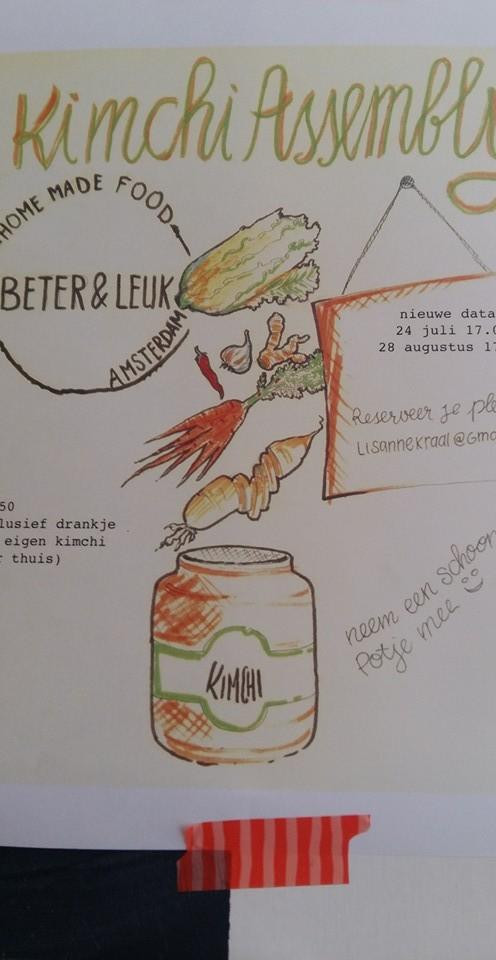 Kimchi Assembly
HOME MADE FOOD
BETER & LEUK
AMSTERDAM
nieuwe data
24 juli 17.0
28 augustus 17
Reserveer je ple
Lisannekraal@Gma
50
lusief drankje
eigen kimchi
r thuis)
neem een schoon
Potje mee
KIMCHI